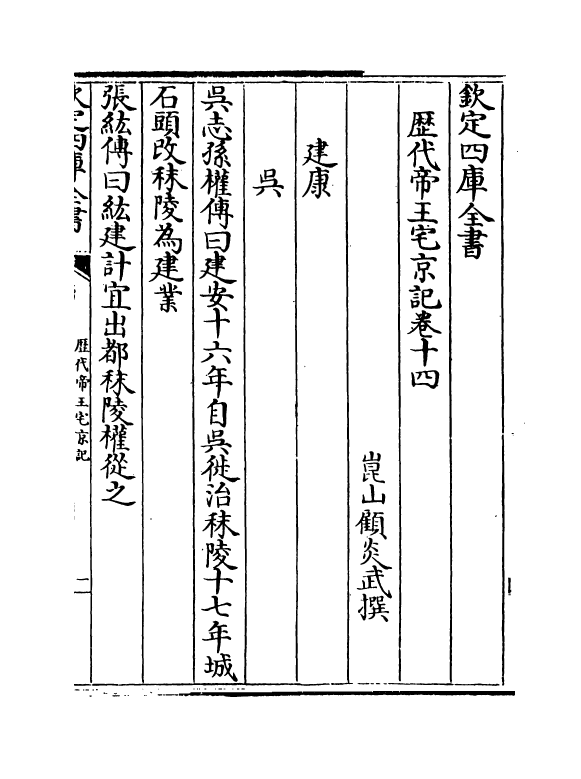 欽定四庫全書
歴代帝王宅京記卷十四
崑山顧炎武撰
建康
吳
吳志孫權傳曰建安十六年自吳徙治秣陵十七年城
石頭改秣陵為建業
張紘傳曰紘建計宜出都秣陵權從之
欽定四庫全書
歴代帝王宅京記
二